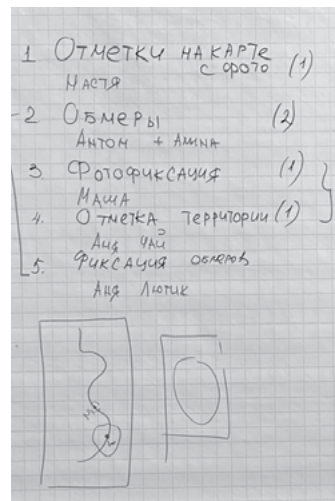 1 Отметки на карте
с фото (1)
Настя
2 Обмеры (2)
Антон + Алина
3. Фотофиксация (1)
Маша
4. Отметка территории (1)
Аня Чай
5. Фиксация обмеров
Аня Лютик